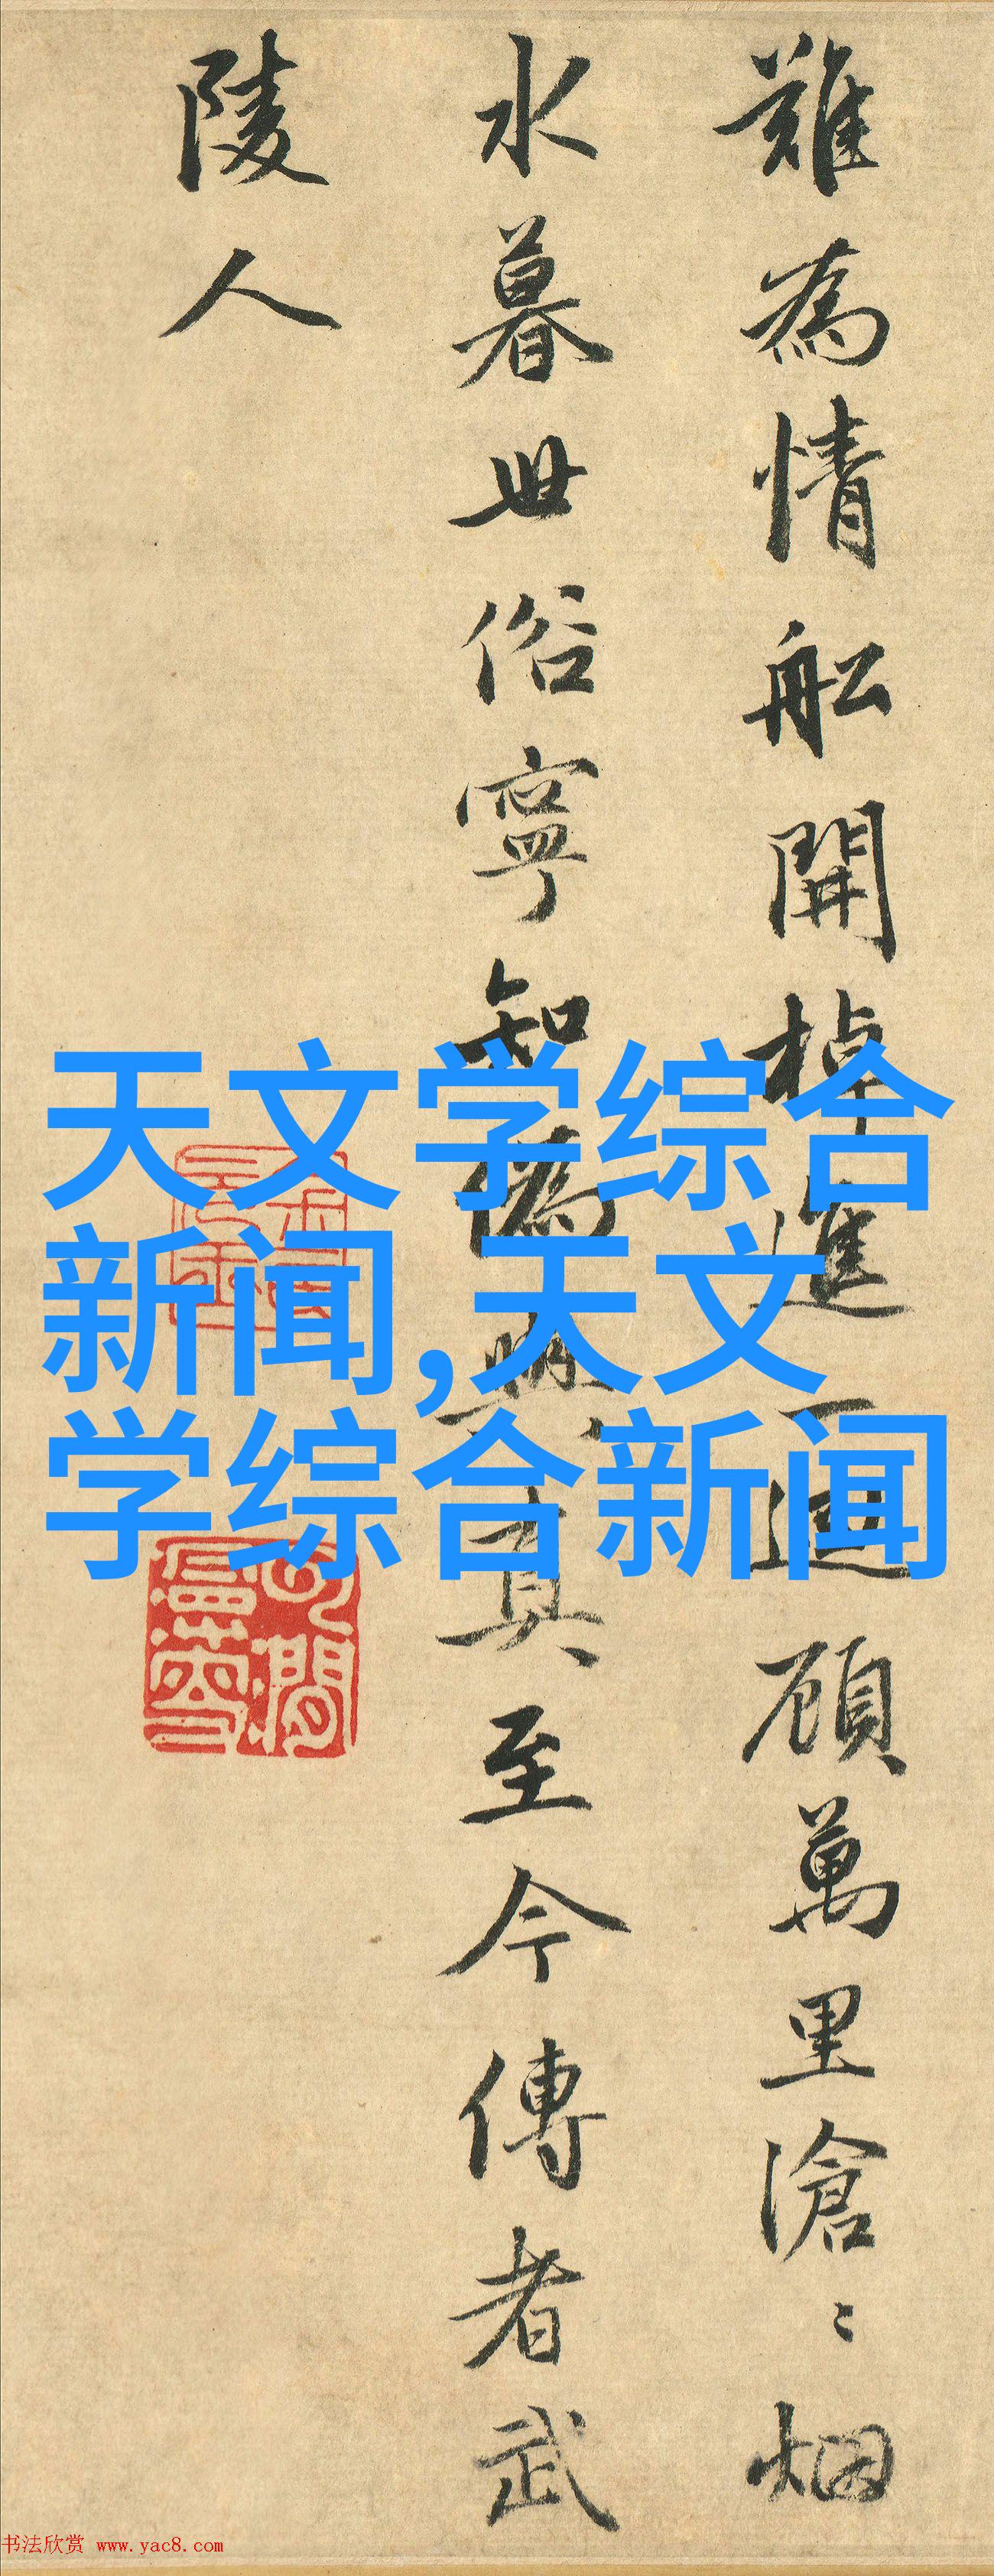 難為情船開棹進一迴顧萬里滄〻烟
水暮世俗寧知偽與真至今傳者武
陵人
天文学综合
新闻,天文
学综合新闻
书法欣赏 www.yac8.com